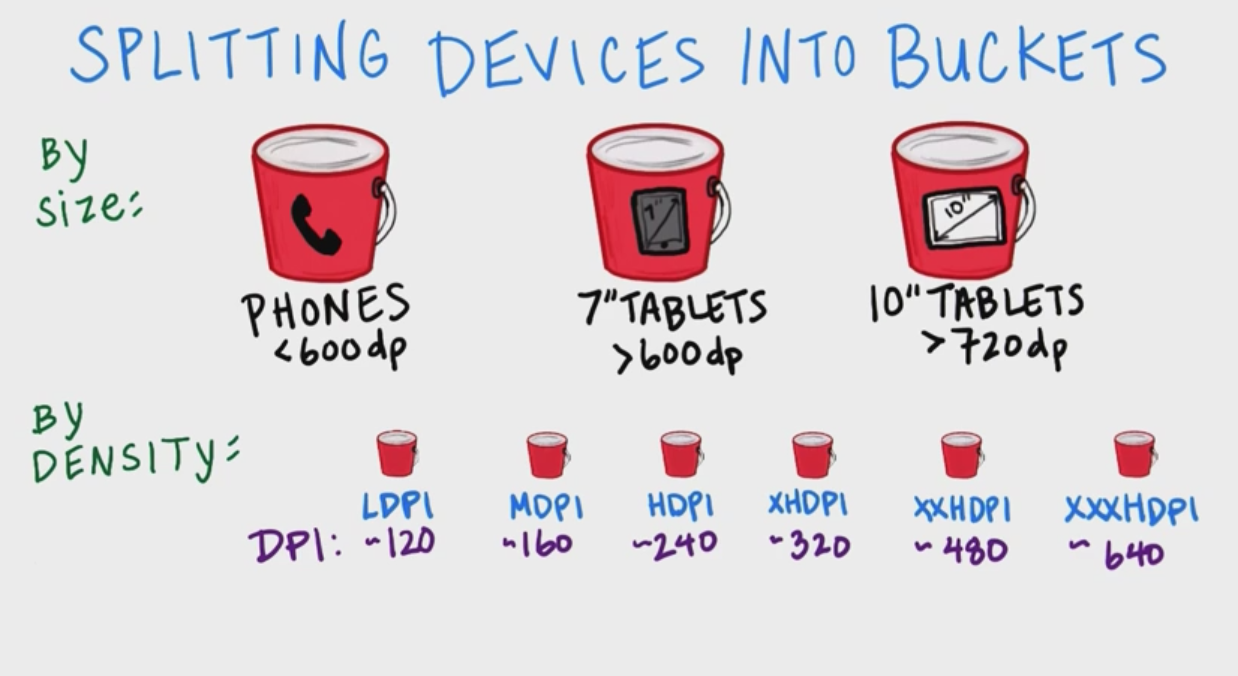 SPLITTING DEVICES INTO BUCKETS
By
size:
7"
10"
PHONES
<600dp
7" TABLETS
>600dp
10" TABLETS
>720dp
By
DENSITy:
LDPI MDPI HDPI XHDPI XXHDPI XXXHDPI
DPI: ~120 ~160 ~240 ~320 ~480 ~640